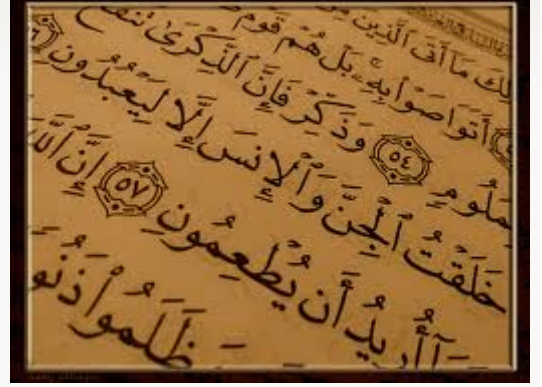 لِكَ مَآ أَتَى ٱلَّذِينَ مِن
أَتَوَاصَوْا۟ بِهِۦ ۚ بَلْ هُمْ قَوْمٌ
مَلُومٍ ٥٤ وَذَكِّرْ فَإِنَّ ٱلذِّكْرَىٰ تَنفَعُ
خَلَقْتُ ٱلْجِنَّ وَٱلْإِنسَ إِلَّا لِيَعْبُدُونِ
أُرِيدُ أَن يُطْعِمُونِ ٥٧ إِنَّ
ظَلَمُوا۟ ذَنُو